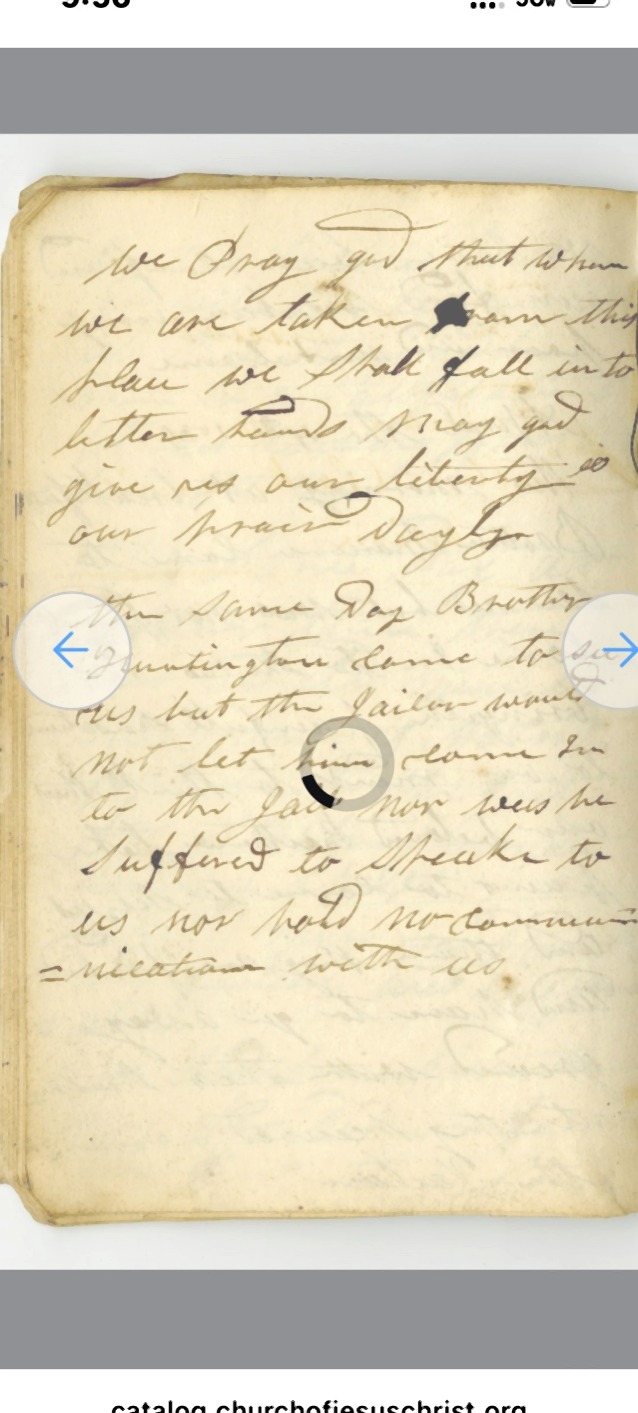 we Pray god that when
we are taken from this
place we Shall fall in to
better hands may god
give us our liberty is
our prair Dayly
the same Day Brother
Huntington came to see
us but the Jailor would
not let him come In
to the Jail nor was he
Suffered to Speake to
us nor hold no commun
=nication with us
catalog.churchofjesuschrist.org